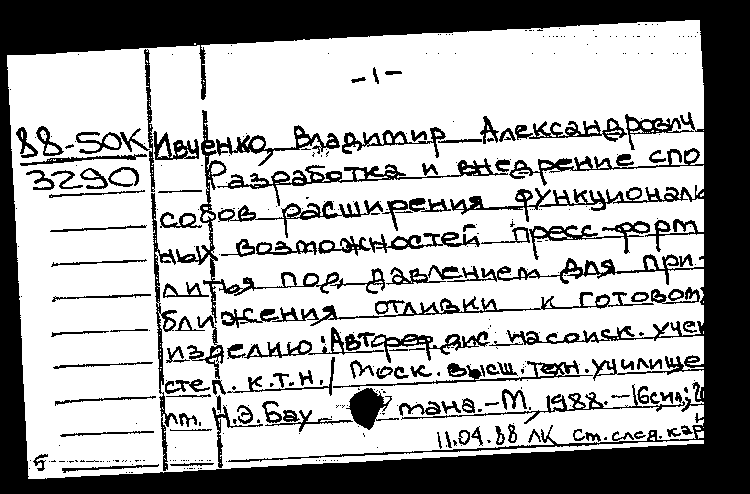 -1-
88-50К Ивченко, Владимир Александрович
3290 Разработка и внедрение спо
собов расширения функциональ
ных возможностей пресс-форм
литья под давлением для при-
ближения отливки к готовому
изделию: Автореф. дис. на соиск. учен
степ. к.т.н. / Моск. высш. техн. училище
им. Н.Э. Бау мана.-М., 1988.-16с., ил;
11.04.88 ЛК См. след. кар
5